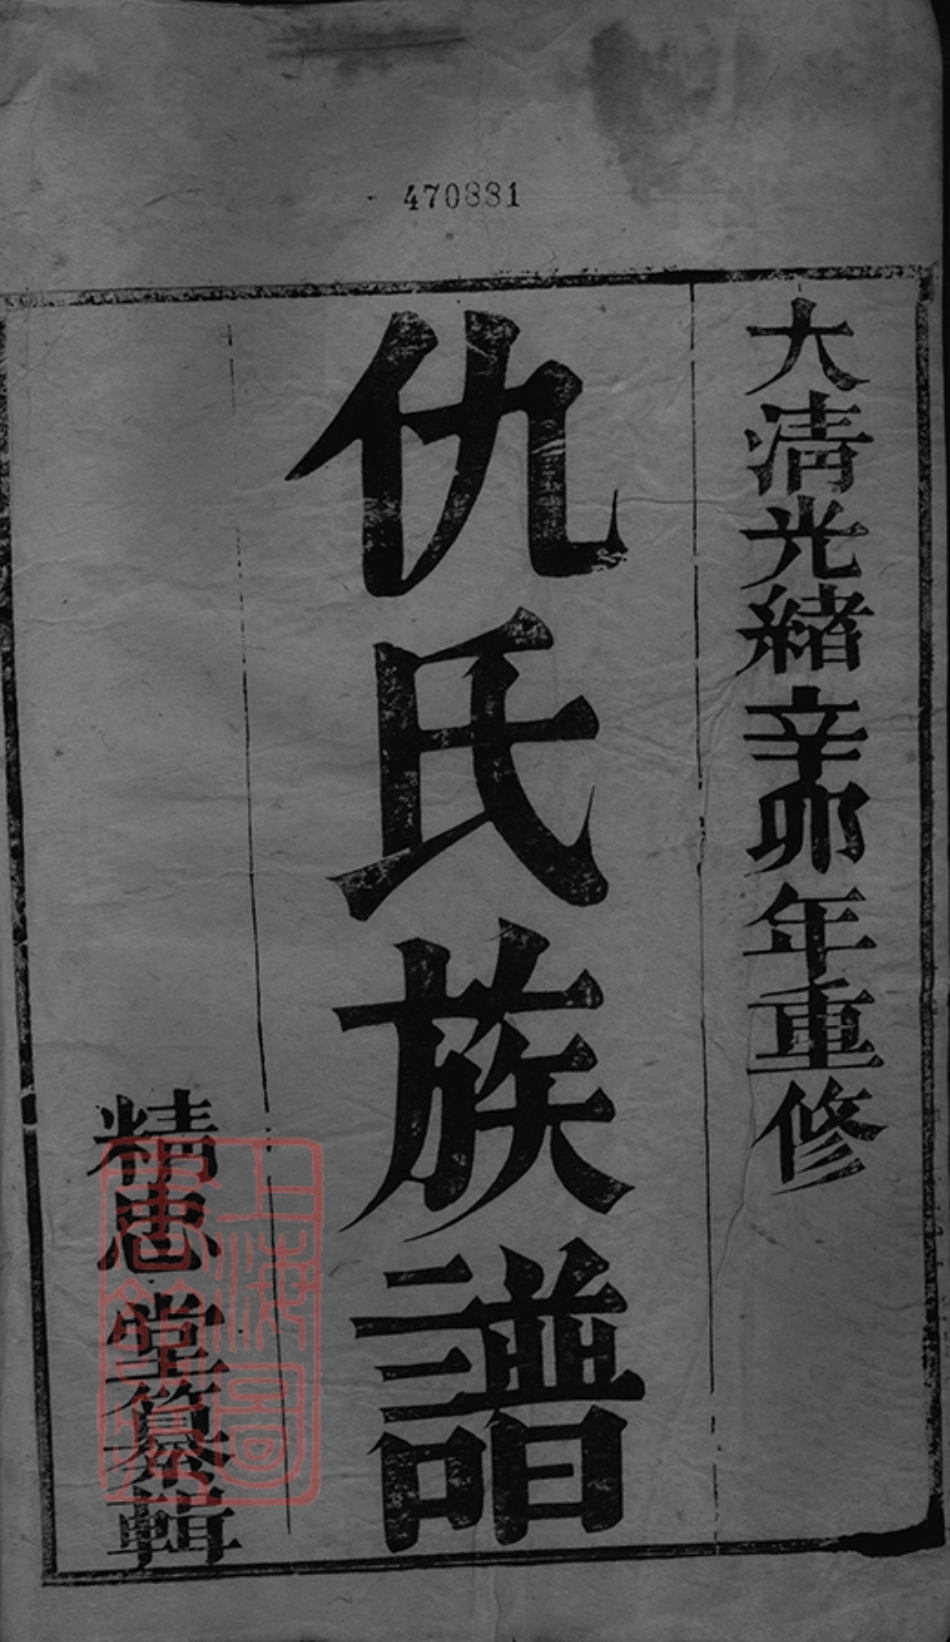 470881
大清光緒辛卯年重修
仇氏族譜
精忠堂纂輯
上海圖書館藏